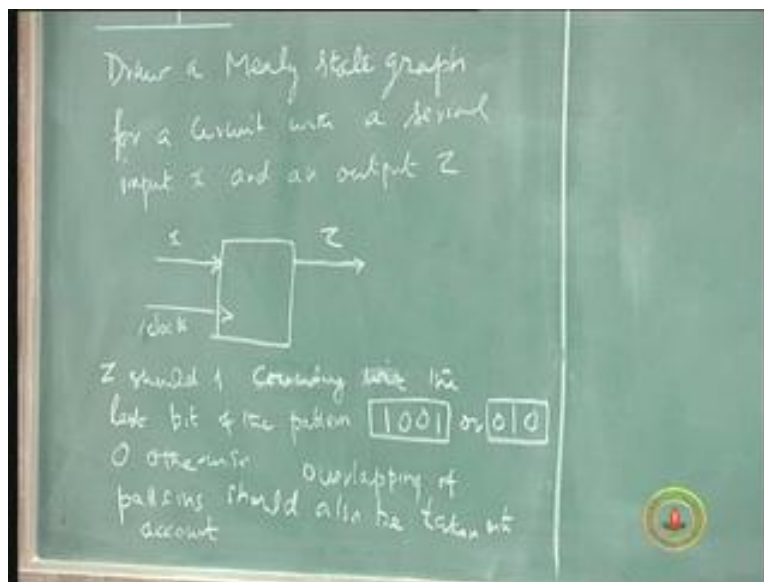 Draw a Mealy state graph
for a circuit with a serial
input x and an output Z
x
Z
clock
Z should 1 coinciding with the
last bit of the pattern 1001 or 010
0 otherwise overlapping of
patterns should also be taken into
account